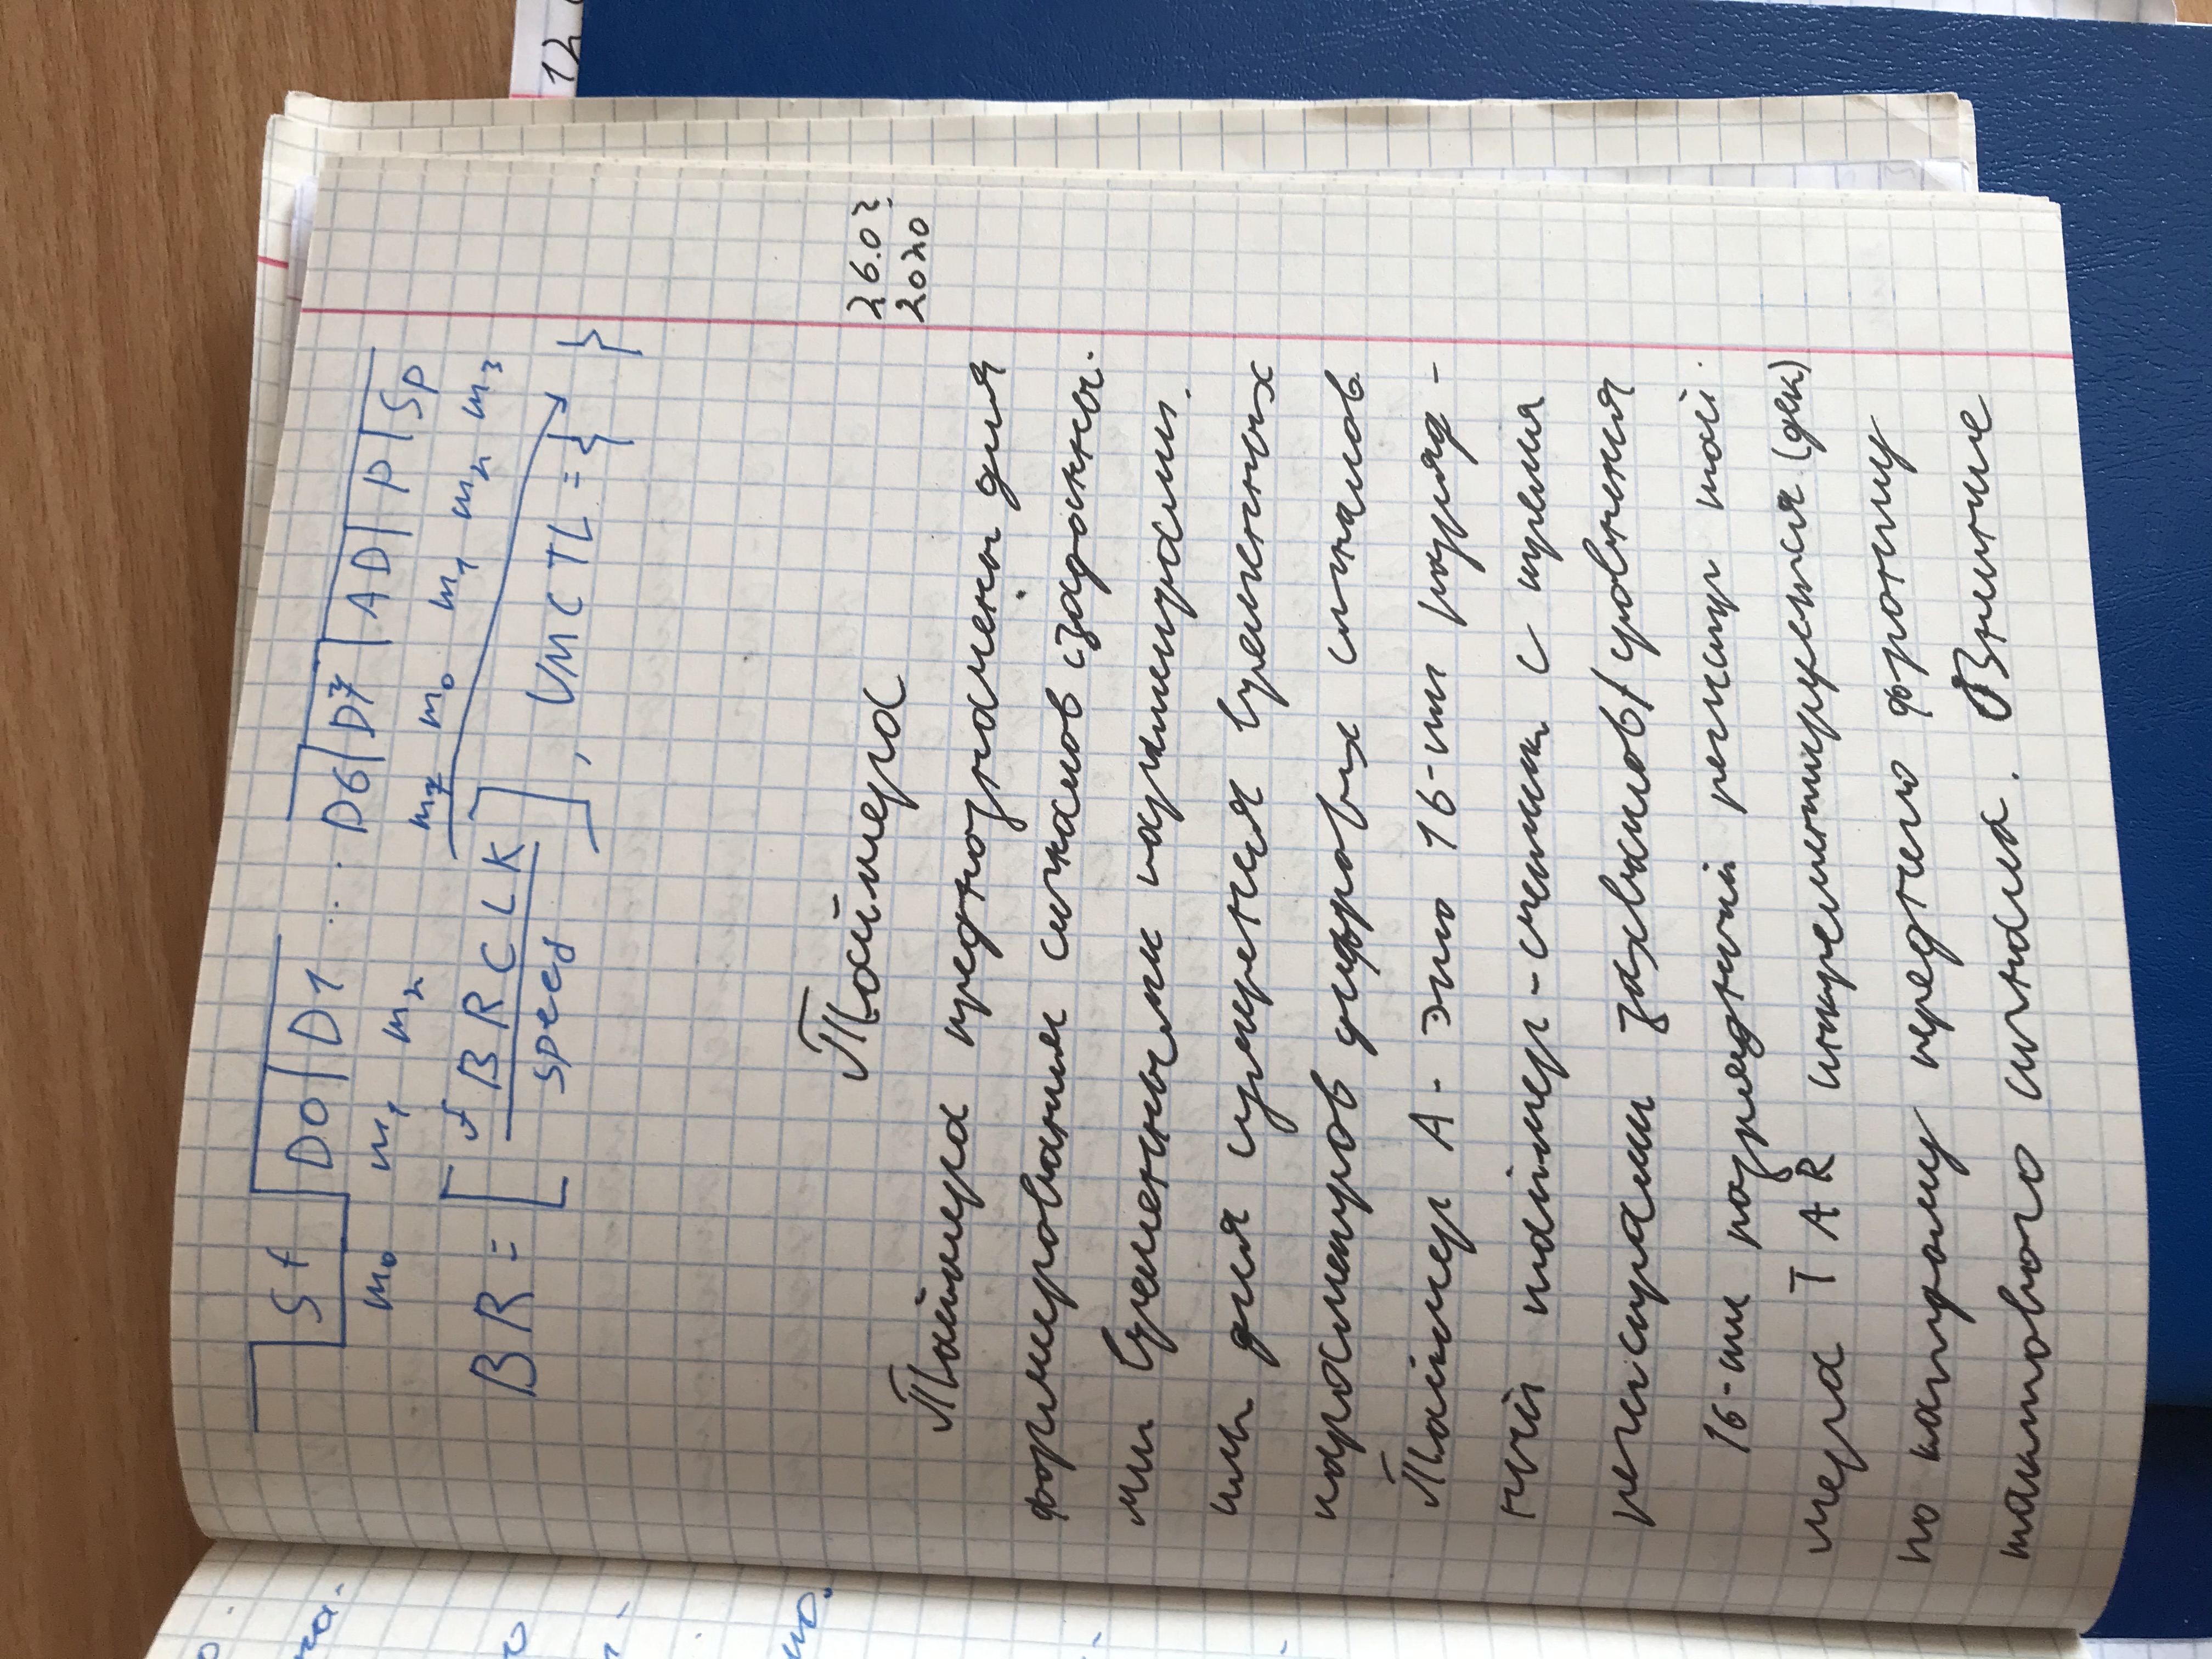 St D0 D1 ... D6 D7 AD P Sp
m0 m1 m2 m7 m0 m1 m2 m3
BR = [ fBRCLK / speed ] , UMCTL = { }
Таймера
26.02
2020
Таймера предназначены для
формирования сигналов с заданны-
ми временными параметрами.
или для измерения временных
параметров цифровых сигналов.
Таймер А - это 16-ти разряд-
ный таймер-счетчик с тремя
регистрами захватов/сравнения
16-ти разрядный регистр тай-
мера TAR инкрементируется (дек)
по каждому переднему фронту
тактового сигнала. Внешние
12